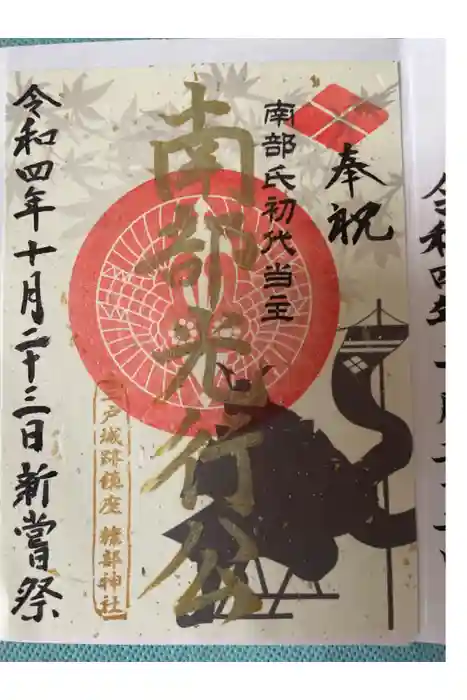 奉祝
南部氏初代当主
南部光行公
三戸城跡鎮座 糠部神社
令和四年十月二十三日新嘗祭
令和四年